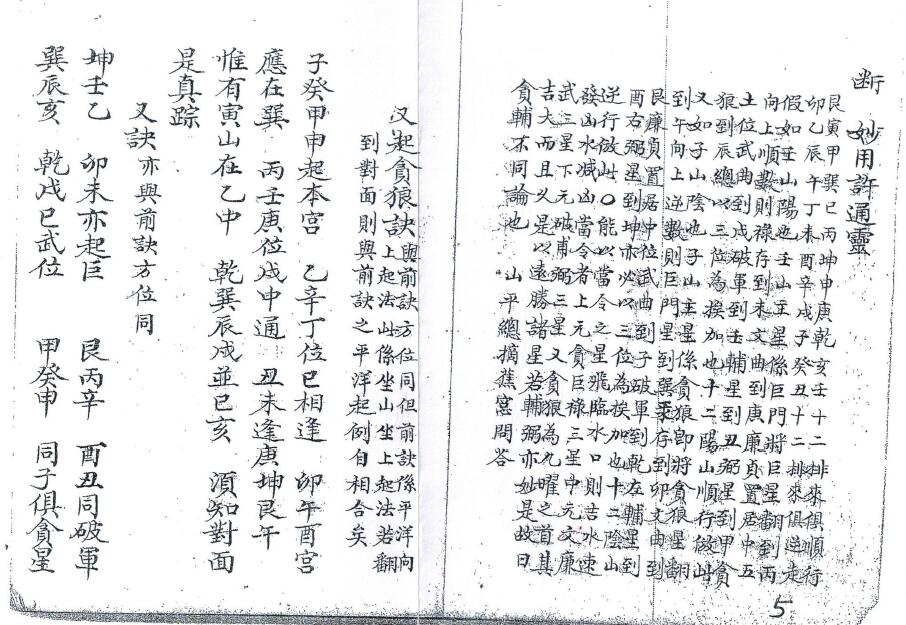 断 妙用許通靈
艮寅甲巽巳丙坤申庚乾亥壬十二排來俱順行
卯乙辰午丁未酉辛戌子癸丑十二排來俱逆走
假如壬山陽也壬山主星係巨門將巨星翻到丙
向上順數則祿存到未文曲到庚廉貞置居中五
土位武曲到戌破軍到壬輔星到丑弼星到甲貪
狼到辰總以三位為挨加也十二陽山順行倣此
又如子山陰也子山主星係貪狼卽將貪狼星翻
到午向上逆數則巨門星到巽祿存到卯文曲到
艮廉貞置居中位武曲到子破軍到乾左輔星到
酉右弼星到坤亦必以三位為挨加也十二陰山
逆行倣此〇能以當令之星飛臨水口則吉水速
發凶水減凶當令者上元貪巨祿三星中元文廉
武三星下元破輔弼三星又貪狼為九曜之首其
吉大而且久是以遠勝諸星若輔弼亦妙是故曰
貪輔不同論也 山平總摘蕉窓問答
5
又起貪狼訣 與前訣方位同但前訣係平洋向
上起法此係坐山坐上起法若翻
到對面則與前訣之平洋起例自相合矣
子癸甲申起本宮 乙辛丁位巳相逢 卯午酉宮
應在巽 丙壬庚位戌中通 丑未逢庚坤艮午
惟有寅山在乙中 乾巽辰戌並巳亥 須知對面
是真踪
又訣 亦與前訣方位同
坤壬乙 卯未亦起巨 艮丙辛 酉丑同破軍
巽辰亥 乾戌巳武位 甲癸申 同子俱貪星